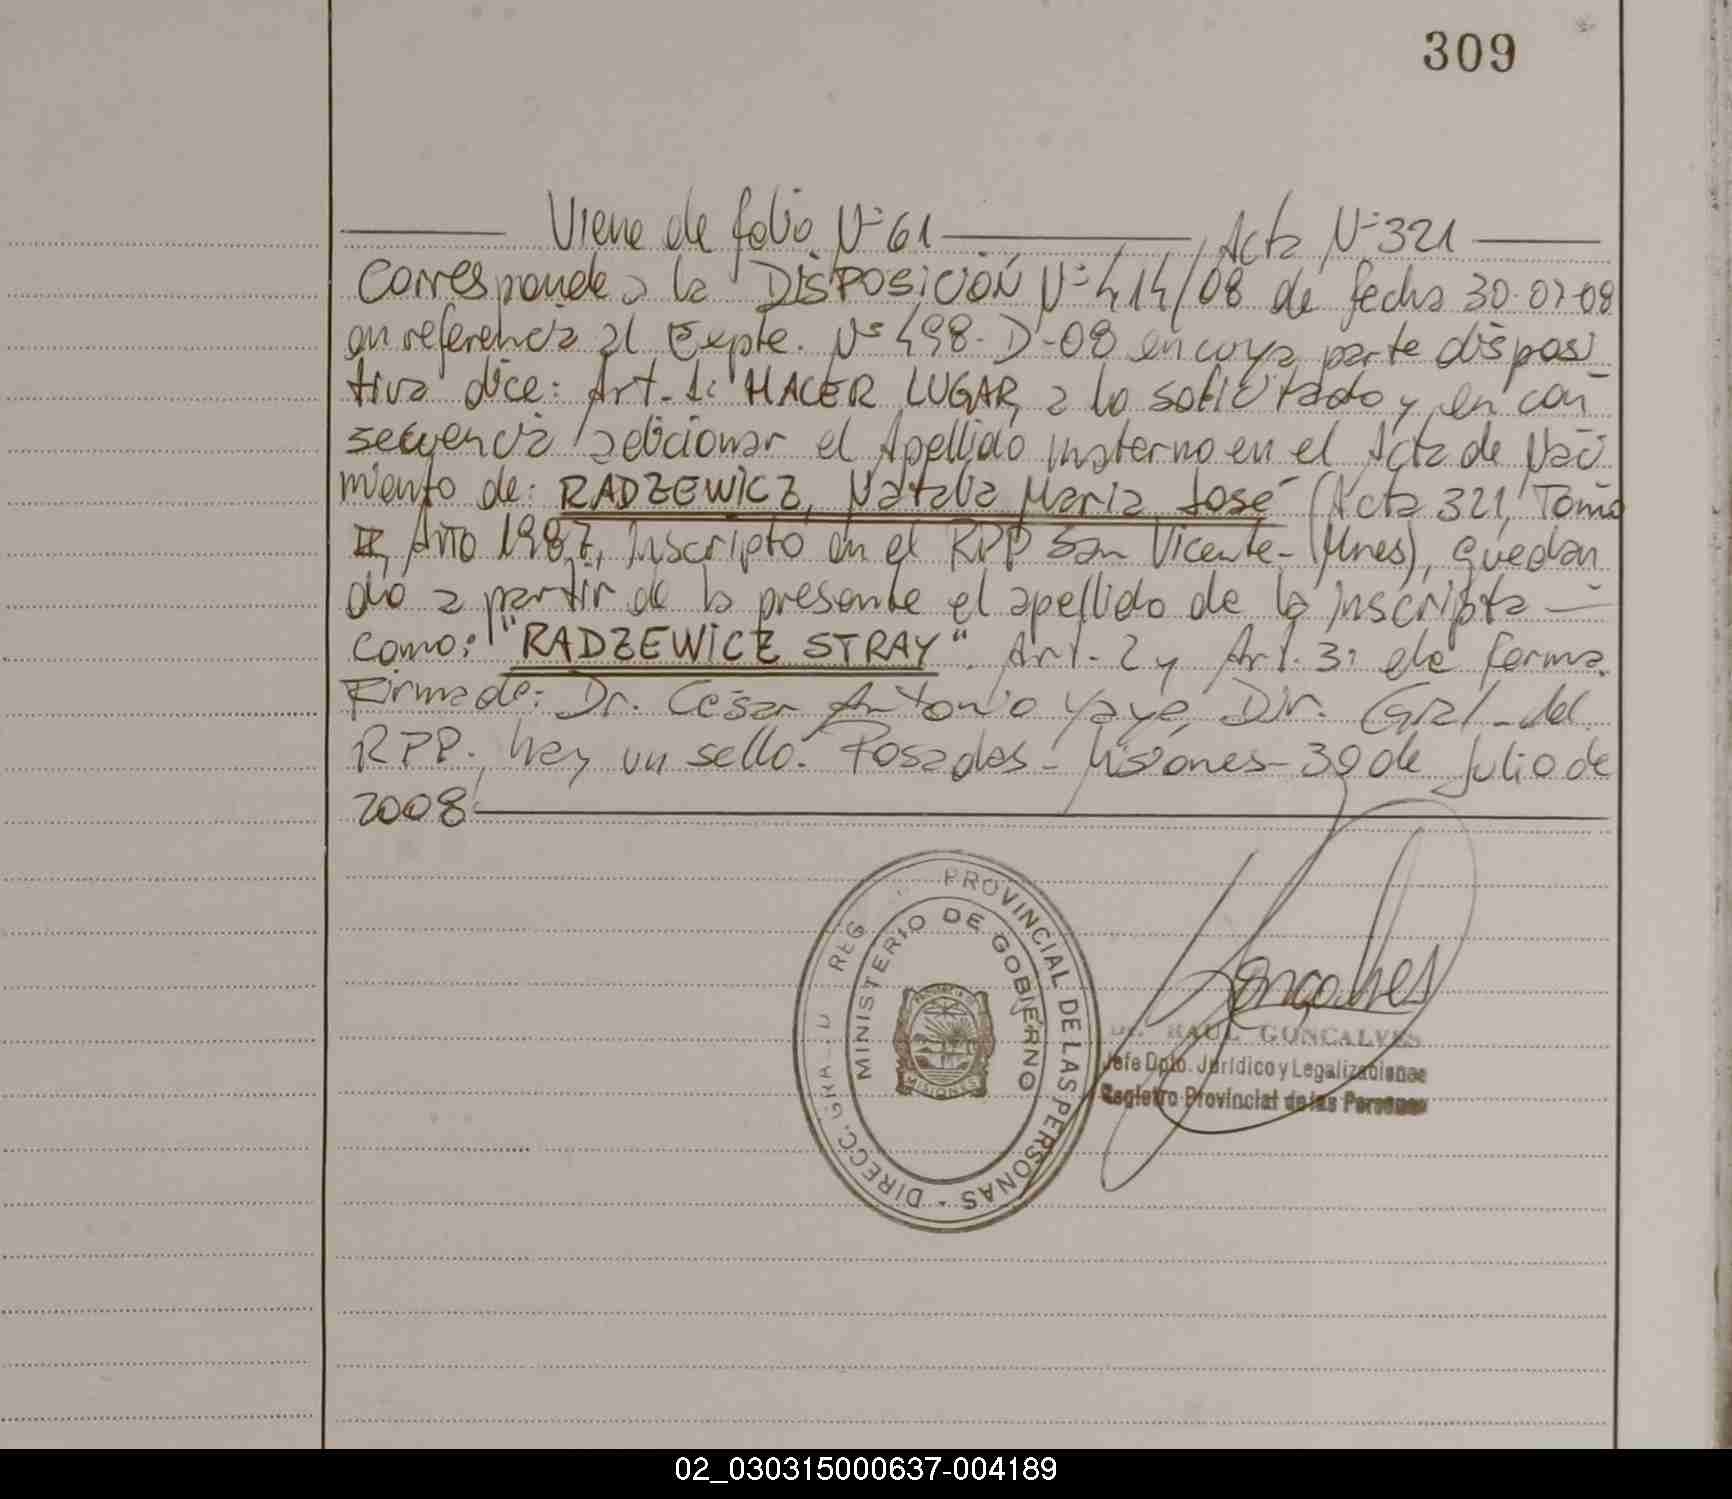 309
Viene de folio Nº 61 Acta Nº 321
Corresponde a la DISPOSICIÓN Nº 414/08 de fecha 30-07-08
en referencia al Expte. Nº 498-D-08 en cuya parte disposi
tiva dice: Art. 1: HACER LUGAR, a lo solicitado y en con
secuencia adicionar el Apellido materno en el Acta de Naci
miento de: RADZEWICZ, Natalia Maria José (Acta 321, Tomo
II, Año 1987, inscripto en el RPP San Vicente-(Mnes), quedan
do a partir de la presente el apellido de la inscripta
como: "RADZEWICZ STRAY". Art. 2 y Art. 3: de forma.
Firmado: Dr. César Antonio Yaya, Dir. Gral. del
RPP. hay un sello. Posadas - Misiones - 30 de Julio de
2008
DIRECC. GRAL. D REG. PROVINCIAL DE LAS PERSONAS -
MINISTERIO DE GOBIERNO
MISIONES
Goncalves
Dr. RAUL GONCALVES
Jefe Dpto. Jurídico y Legalizaciones
Registro Provincial de las Personas
02_030315000637-004189